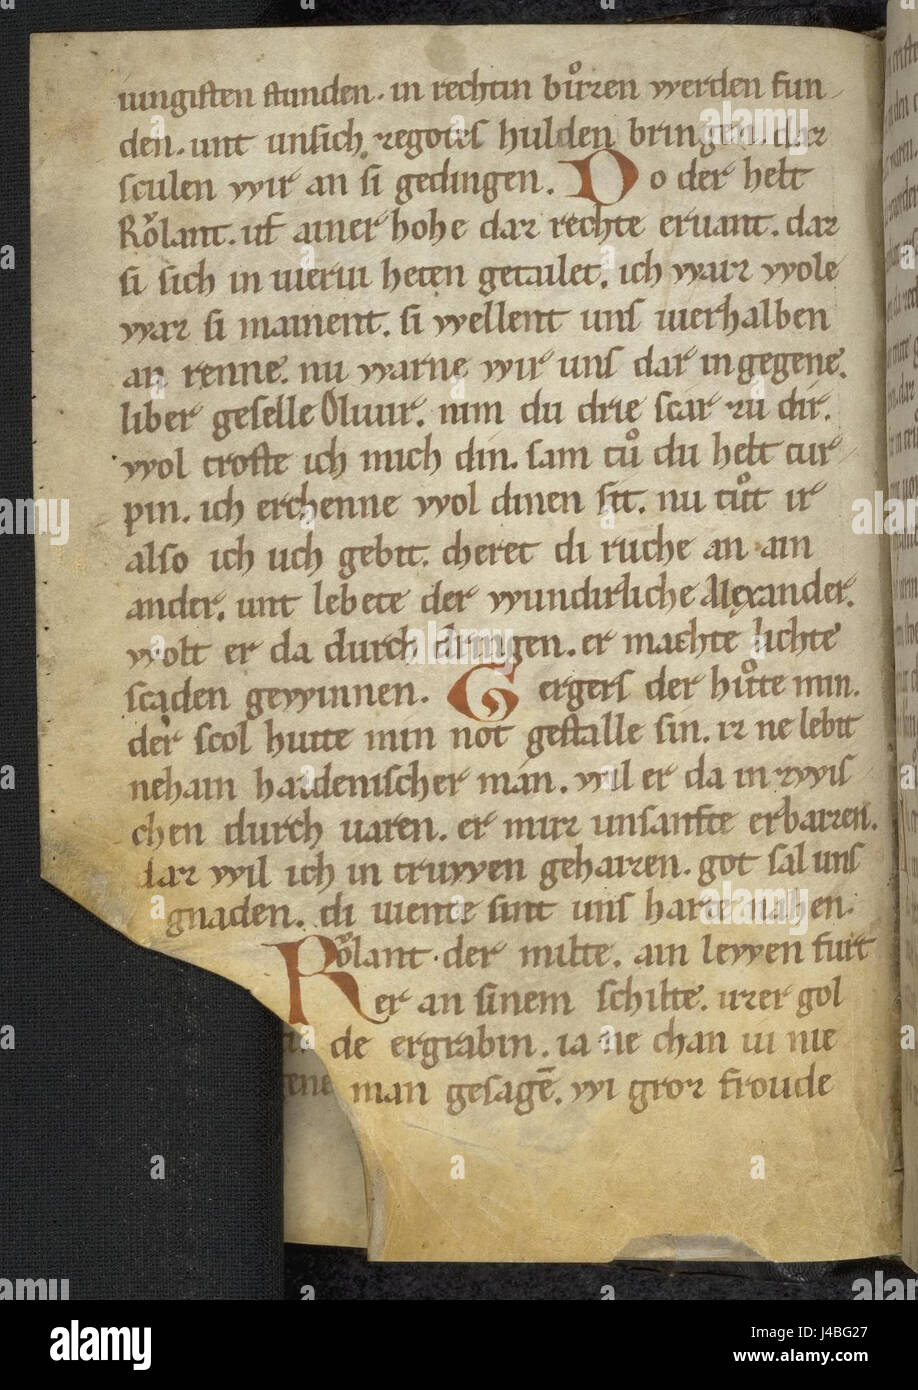 iungisten stunden. in rechtin bůzen werden fun
den. unt unsich zegotes hulden bringen. daz
sculen wir an si gedingen. Do der helt
Rͦlant. uf ainer hohe daz rechte eruant. daz
si sich in uieriu heten getailet. ich waiz wole
waz si mainent. si wellent uns uierhalben
an renne. nu warne wir uns dar ingegene.
liber geselle Oliuir. nim du drie scar zu dir.
wol troste ich mich din. sam tů du helt tur
pin. ich erchenne wol dinen sit. nu tůt ir
also ich uch gebit. cheret di ruche an ain
ander. unt lebete der wundirliche Alexander.
wolt er da durch dringen. er machte lichte
scaden gewinnen. Gergers der hůte min.
der scol huite min not gestalle sin. iz ne lebit
nehain haidenischer man. wil er da in zwis
chen durch uaren. er můz unsanfte erbaizen.
daz wil ich in truwen gehaizen. got sal uns
gnaden. di uiente sint uns harte nahen.
Rͦlant. der milte. ain lewen furt
er an sinem schilte. uzer gol
de ergrabin. ia ne chan iu nie
man gesagē. wi groz froude
alamy stock photo
J4BG27
www.alamy.com